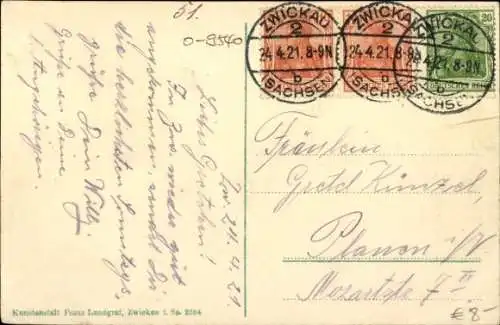 51.
0-9540
ZWICKAU
2
24.4.21.8-9N
b
(SACHSEN)
ZWICKAU
2
24.4.21.8-9N
b
(SACHSEN)
ZWICKAU
2
24.4.21.8-9N
b
(SACHSEN)
20
Zw. 24.4.21
Liebes Gretchen!
In Zw. wieder gut
angekommen, sendet Dir
die herzlichsten Sonntags-
grüße Dein Willy.
Grüße an Deine
l. Angehörigen.
Fräulein
Gretel Künzel,
Plauen i/V
Mozartstr. 7 III
€ 8-
Kunstanstalt Franz Landgraf, Zwickau i. Sa. 2554